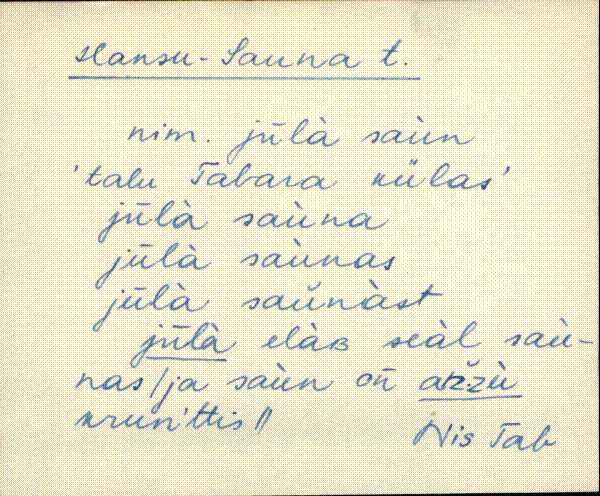 Hansu-Sauna t.
nim. jūlà saùn
'talu Tabara külas'
jūlà saùna
jūlà saùnas
jūlà saŭnàst
jūlà elàʙ seàl saù-
nas/ja saùn oñ aržù
krun'ttis //
Nis Tab